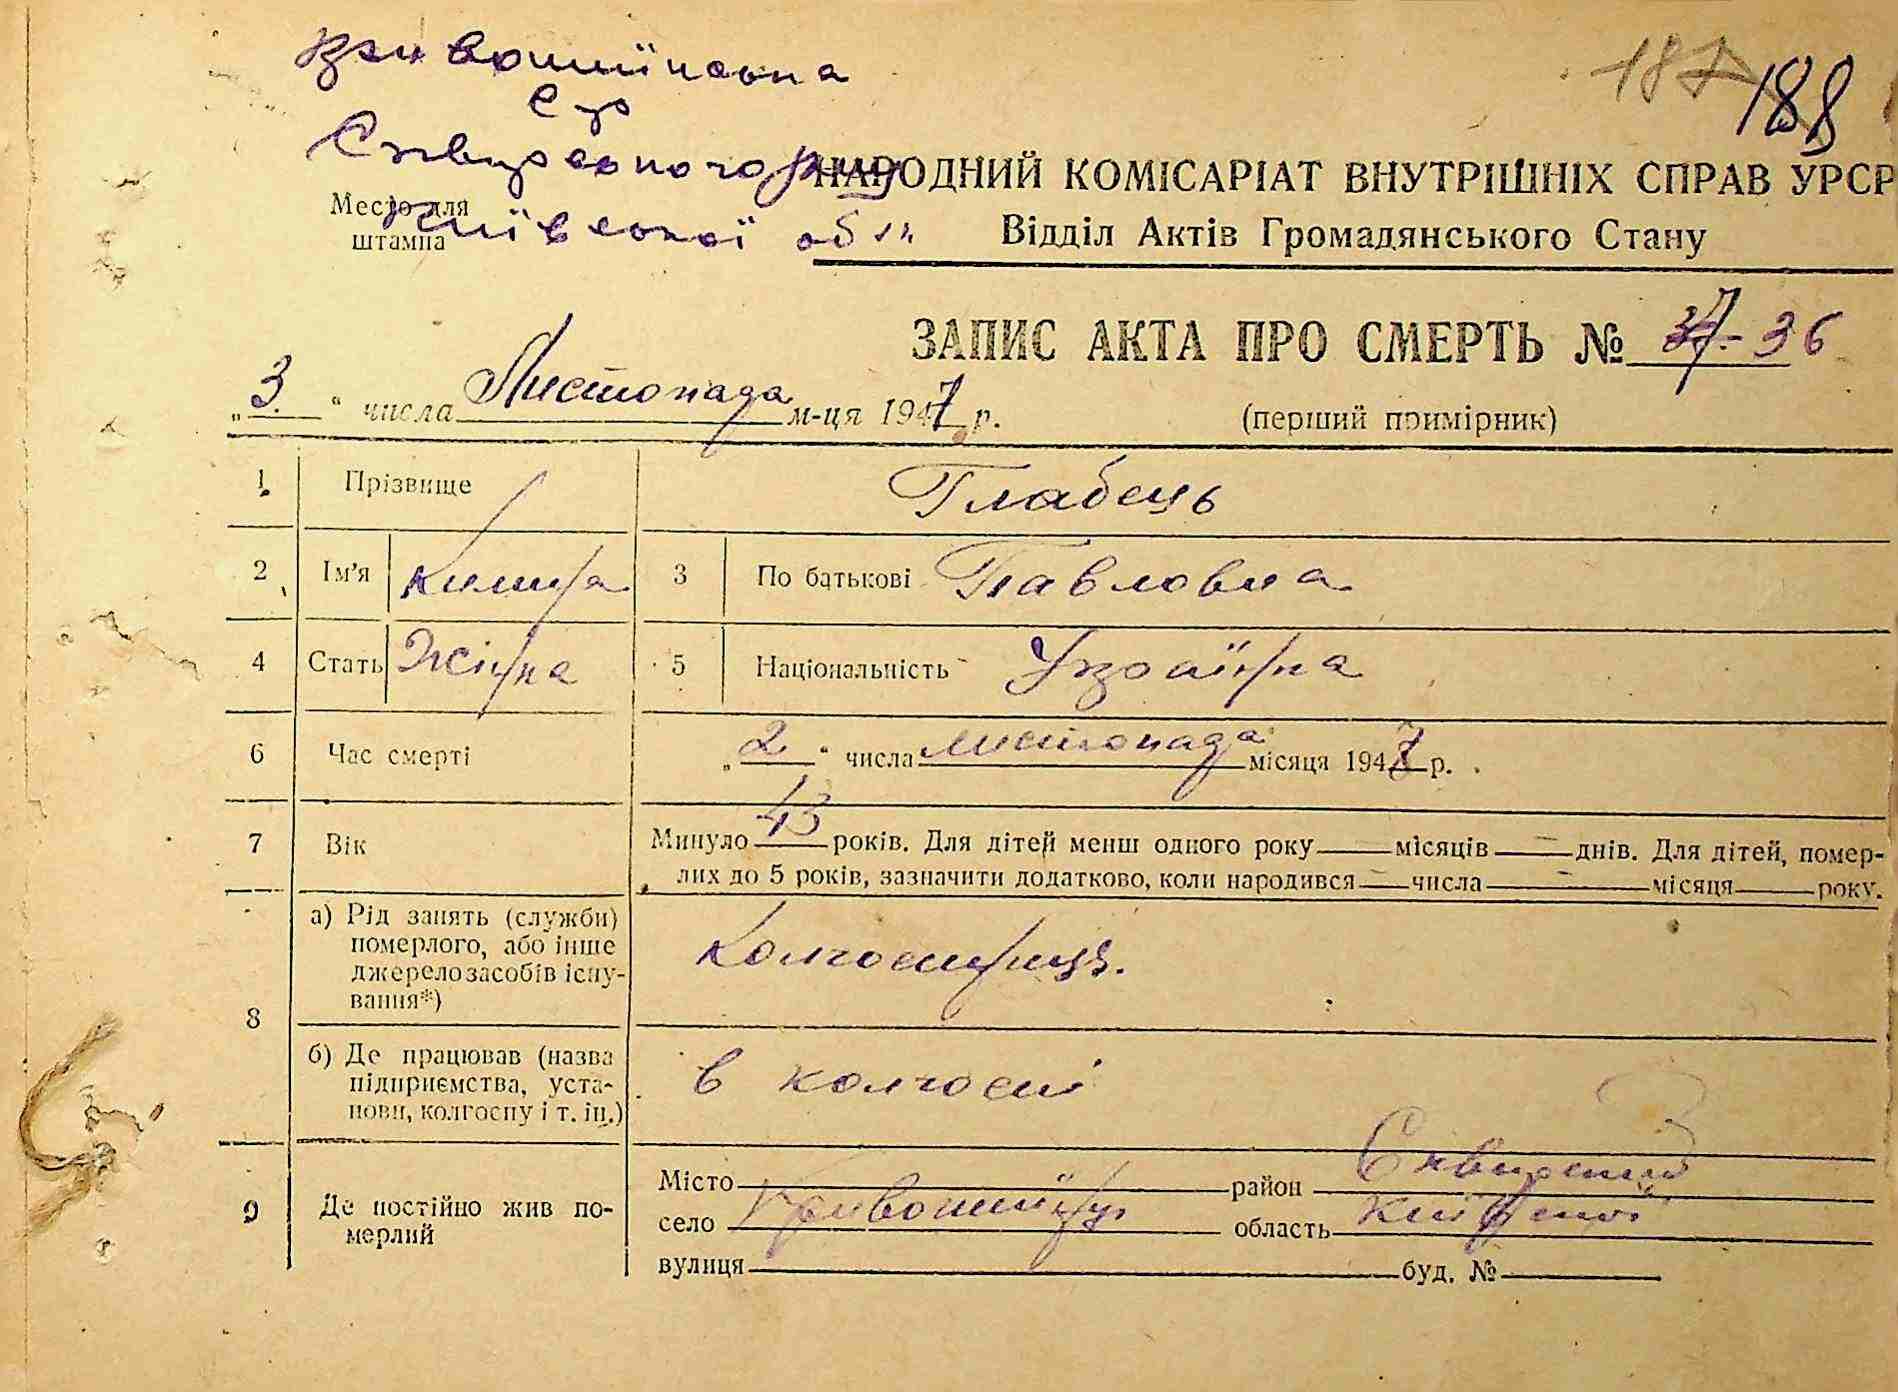 Кривошиїнська
с/р
Сквирського р-ну
Київської обл
187 188
Место для
штампа
НАРОДНИЙ КОМІСАРІАТ ВНУТРІШНІХ СПРАВ УРСР
Відділ Актів Громадянського Стану
ЗАПИС АКТА ПРО СМЕРТЬ № 37 36
„3“ числа Листопада м-ця 1947 р.
(перший примірник)
1. Прізвище Глабець
2 Ім'я 3 По батькові Павловна
4 Стать Жінка 5 Національність Українка
6 Час смерті „2“ числа листопада місяця 1947 р.
7 Вік Минуло 43 років. Для дітей менш одного року — місяців — днів. Для дітей, помер-
лих до 5 років, зазначити додатково, коли народився — числа — місяця — року.
8 а) Рід занять (служби)
померлого, або інше
джерело засобів існу-
вання*) Колгоспниця.
б) Де працював (назва
підприємства, уста-
нови, колгоспу і т. ін.) в колгоспі
9 Де постійно жив по-
мерлий
Місто район Сквирський
село Кривошиїнці область Київської
вулиця буд. №